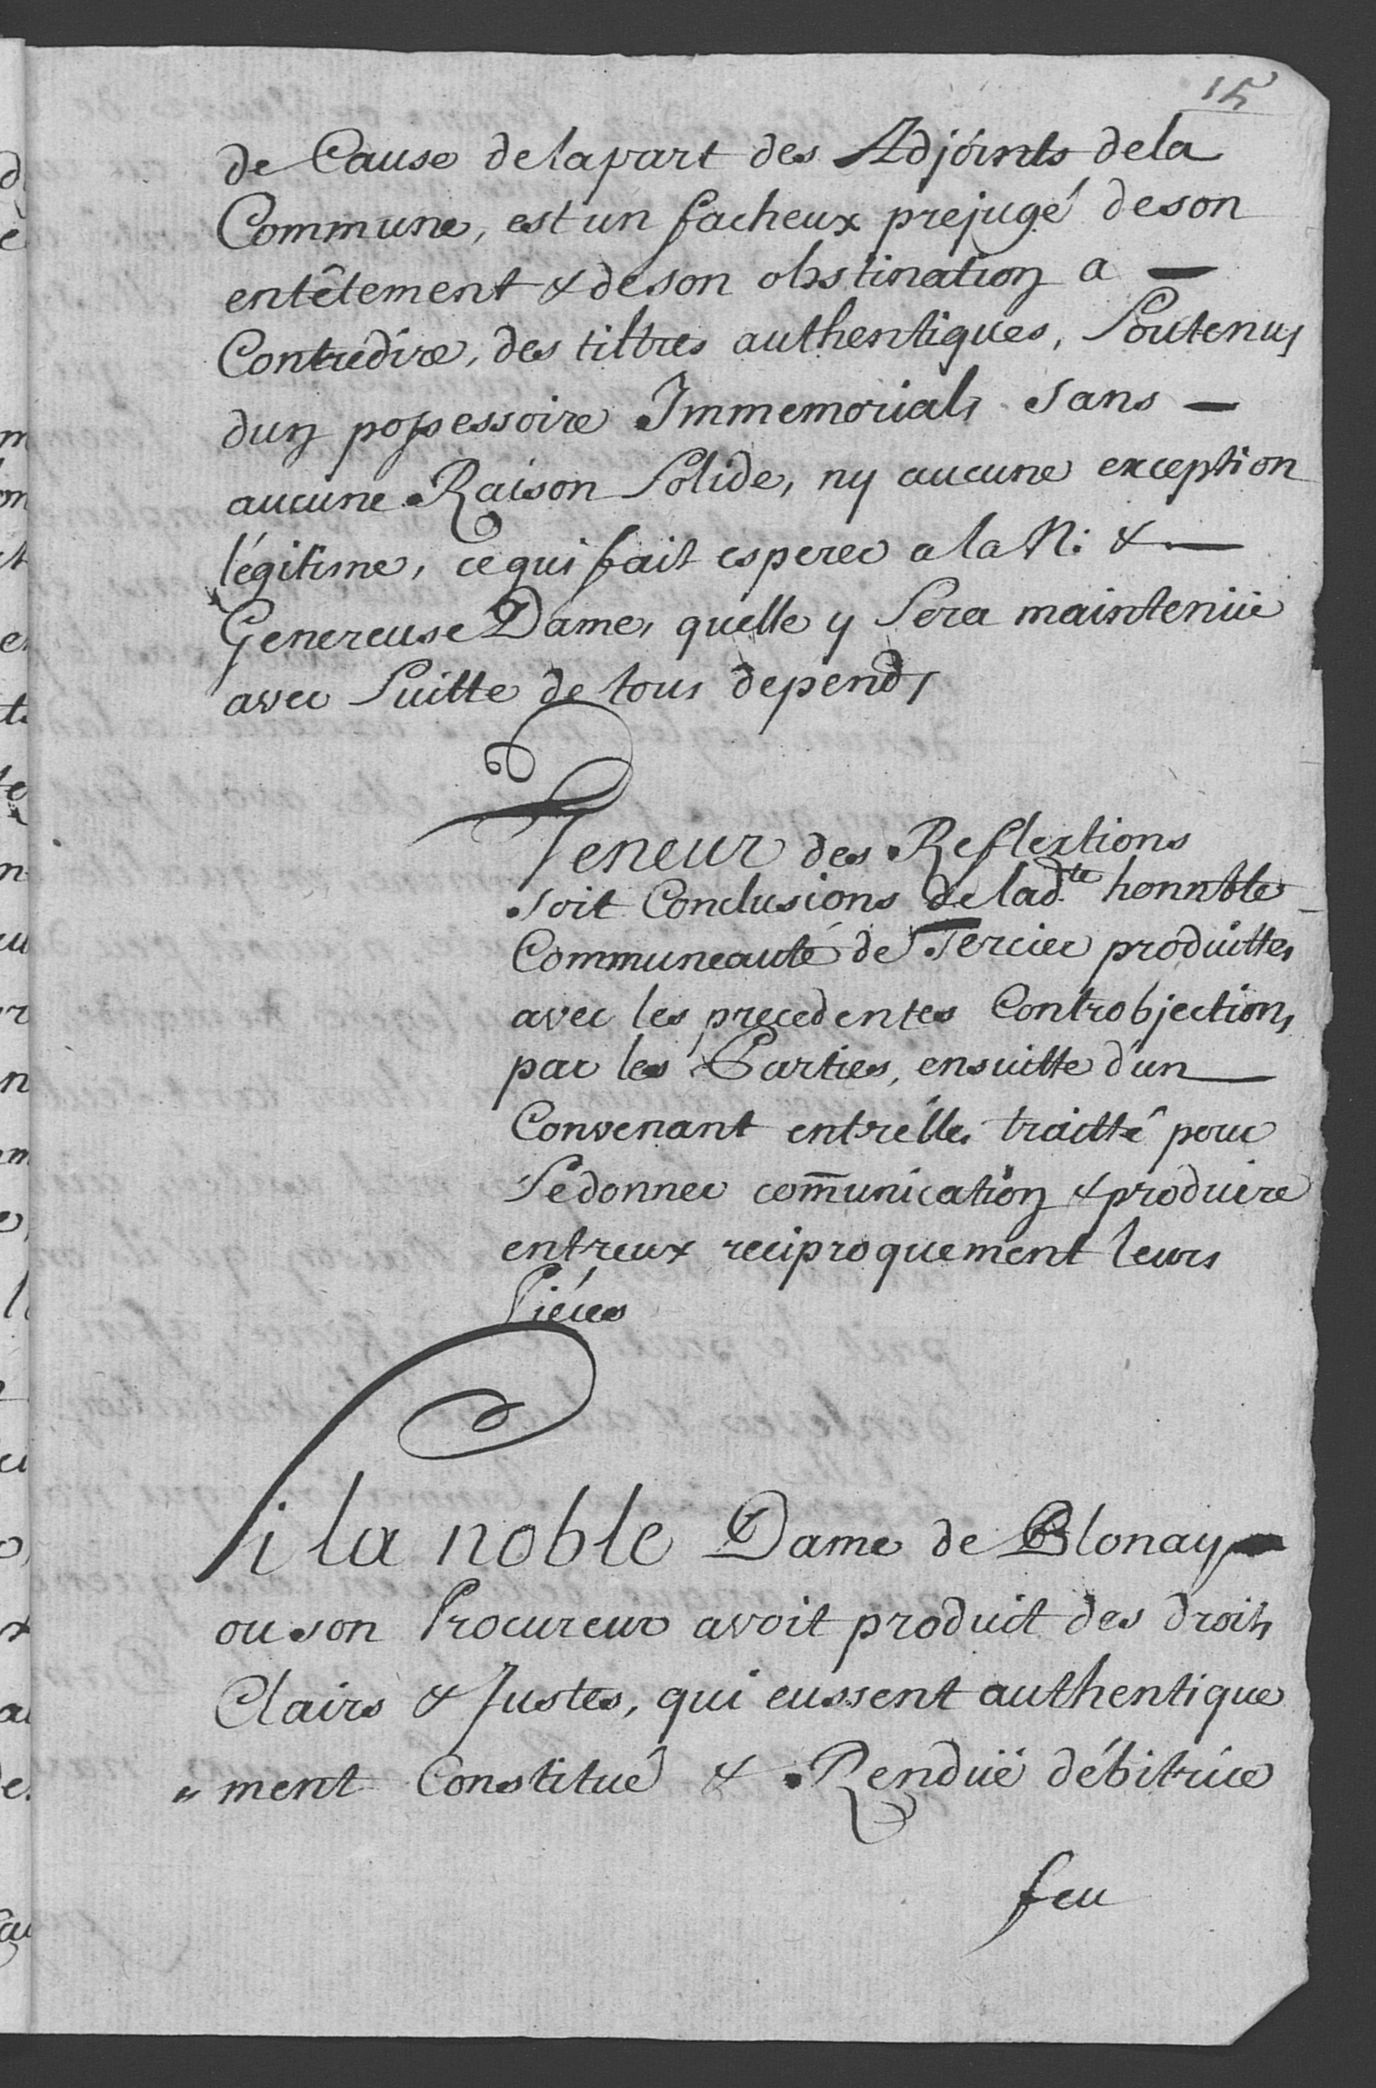 15
de Cause delapart des Adjoints dela
Commune, est un facheux prejugé deson
entêtement & deson obstination a —
Contredire, des tiltres authentiques, Soutenus
dun possessoire Immemorial, sans —
aucune Raison Solide, ny aucune exception
légitime, cequi fait esperer a la N: & —
Genereuse Dame, quelle y Sera maintenüe
avec Suitte de tous depends
Teneur des Reflextions
soit Conclusions de lad.te honnble
Communeauté de Tercier produittes
avec les precedentes Controbjections
par les Parties, ensuitte dun —
Convenant entrélles traitté pour
Sedonner com̄unication & produire
entreux reciproquement leurs
Piéces
Si la noble Dame de Blonay —
ou son Procureur avoit produit des droits
Clairs & Justes, qui eussent authentique
" ment Constitué & Rendüe débitrice
feu